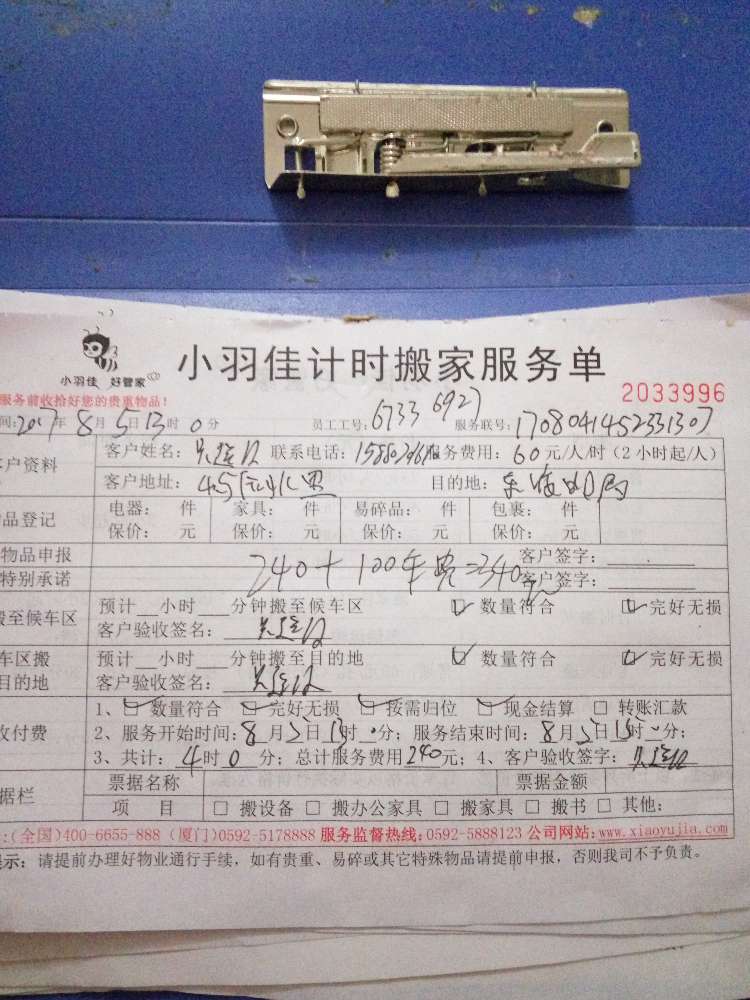 小羽佳 好管家
小羽佳计时搬家服务单
2033996
服务前收拾好您的贵重物品!
间:2017年8月5日13时0分 员工工号:6733 6927 服务联号:1708041452331307
客户资料
客户姓名: 联系电话: 服务费用:60元/人/时(2小时起/人)
客户地址: 目的地:
品登记
电器: 件 家具: 件 易碎品: 件 包裹: 件
保价: 元 保价: 元 保价: 元 保价: 元
物品申报 客户签字:
特别承诺 240+100车费=340元 客户签字:
搬至候车区
预计__小时__分钟搬至候车区 ☑ 数量符合 ☑ 完好无损
客户验收签名:
车区搬
目的地
预计__小时__分钟搬至目的地 ☑ 数量符合 ☑ 完好无损
客户验收签名:
收付费
1、☑ 数量符合 ☑ 完好无损 ☑ 按需归位 ☑ 现金结算 □ 转账汇款
2、服务开始时间:8月5日13时0分;服务结束时间:8月5日15时0分;
3、共计:4时0分;总计服务费用240元;4、客户验收签字:
据栏
票据名称 票据金额
项 目 □ 搬设备 □ 搬办公家具 □ 搬家具 □ 搬书 □ 其他:
:(全国)400-6655-888 (厦门)0592-5178888 服务监督热线:0592-5888123 公司网站:www.xiaoyujia.com
提示:请提前办理好物业通行手续,如有贵重、易碎或其它特殊物品请提前申报,否则我司不予负责。